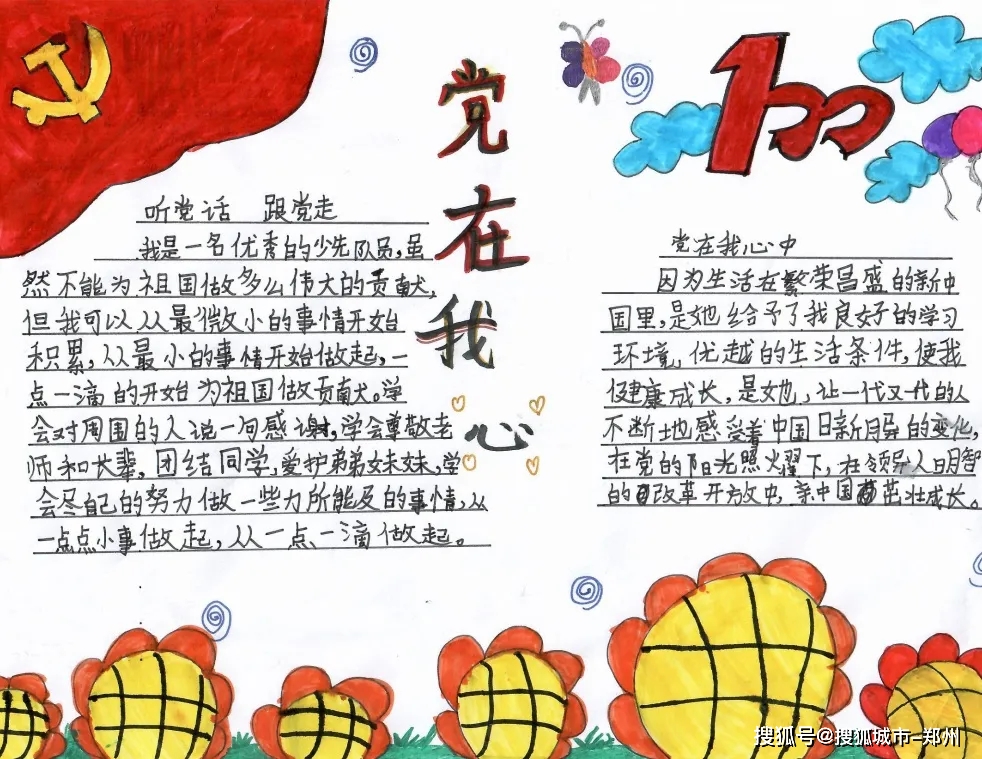 党在我心
100
听党话 跟党走
我是一名优秀的少先队员,虽
然不能为祖国做多么伟大的贡献,
但我可以从最微小的事情开始
积累,从最小的事情开始做起,一
点一滴的开始为祖国做贡献。学
会对周围的人说一句感谢,学会尊敬老
师和长辈,团结同学,爱护弟弟妹妹,学
会尽自己的努力做一些力所能及的事情,从
一点点小事做起,从一点一滴做起。
党在我心中
因为生活在繁荣昌盛的新中
国里,是她给予了我良好的学习
环境,优越的生活条件,使我
健康成长,是她,让一代又一代的人
不断地感受着中国日新月异的变化,
在党的阳光照耀下,在领导人明智
的改革开放中,亲中国茁壮成长。
搜狐号@搜狐城市-郑州